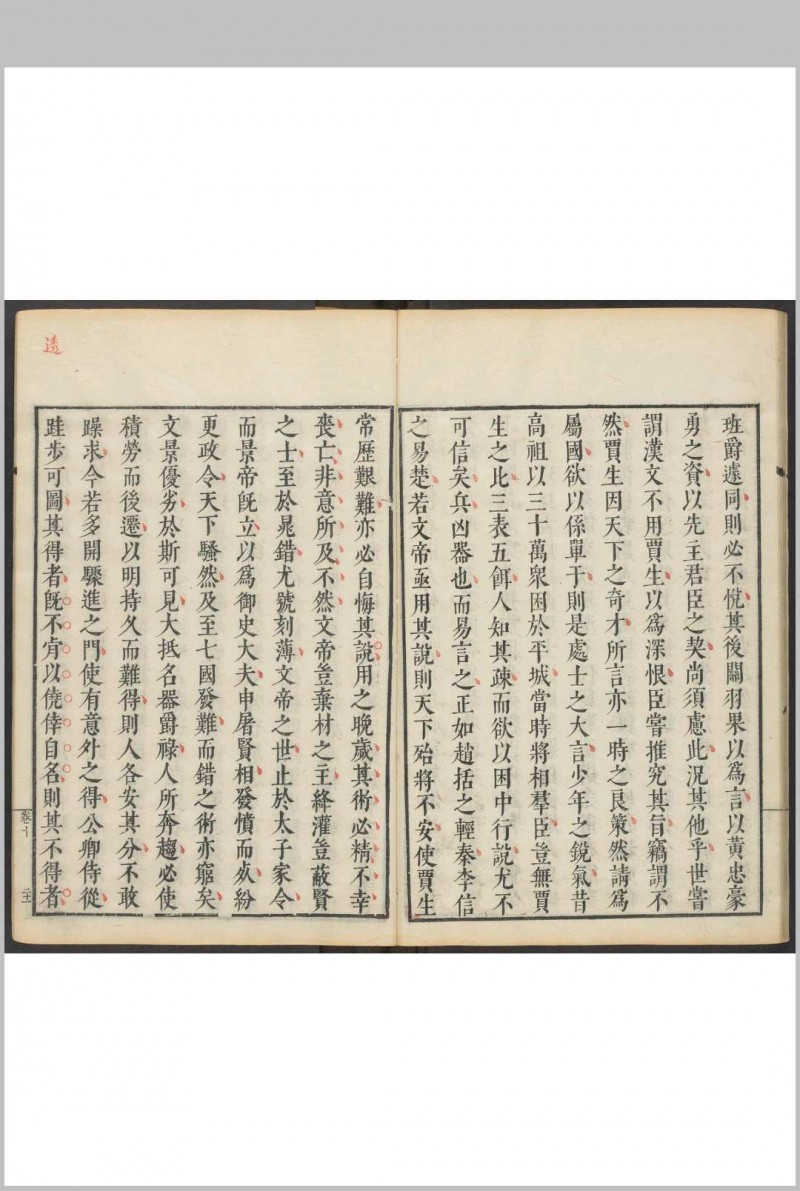 班爵遽同則必不悅其後關羽果以爲言以黃忠豪
勇之資以先主君臣之契尚須慮此況其他乎世嘗
謂漢文不用賈生以爲深恨臣嘗推究其旨竊謂不
然賈生因天下之奇才所言亦一時之良策然請爲
屬國欲以係單于則是處士之大言少年之銳氣昔
高祖以三十萬衆困於平城當時將相羣臣豈無賈
生之比三表五餌人知其疎而欲以困中行說尤不
可信矣兵凶器也而易言之正如趙括之輕秦李信
之易楚若文帝亟用其說則天下殆將不安使賈生
常歷艱難亦必自悔其說用之晚歲其術必精不幸
喪亡非意所及不然文帝豈棄材之主絳灌豈蔽賢
之士至於晁錯尤號刻薄文帝之世止於太子家令
而景帝旣立以爲御史大夫申屠賢相發憤而死紛
更政令天下騷然及至七國發難而錯之術亦窮矣
文景優劣於斯可見大抵名器爵祿人所奔趨必使
積勞而後遷以明持久而難得則人各安其分不敢
躁求今若多開驟進之門使有意外之得公卿侍從
跬步可圖其得者旣不肯以僥倖自名則其不得者
遠
卷十
二十